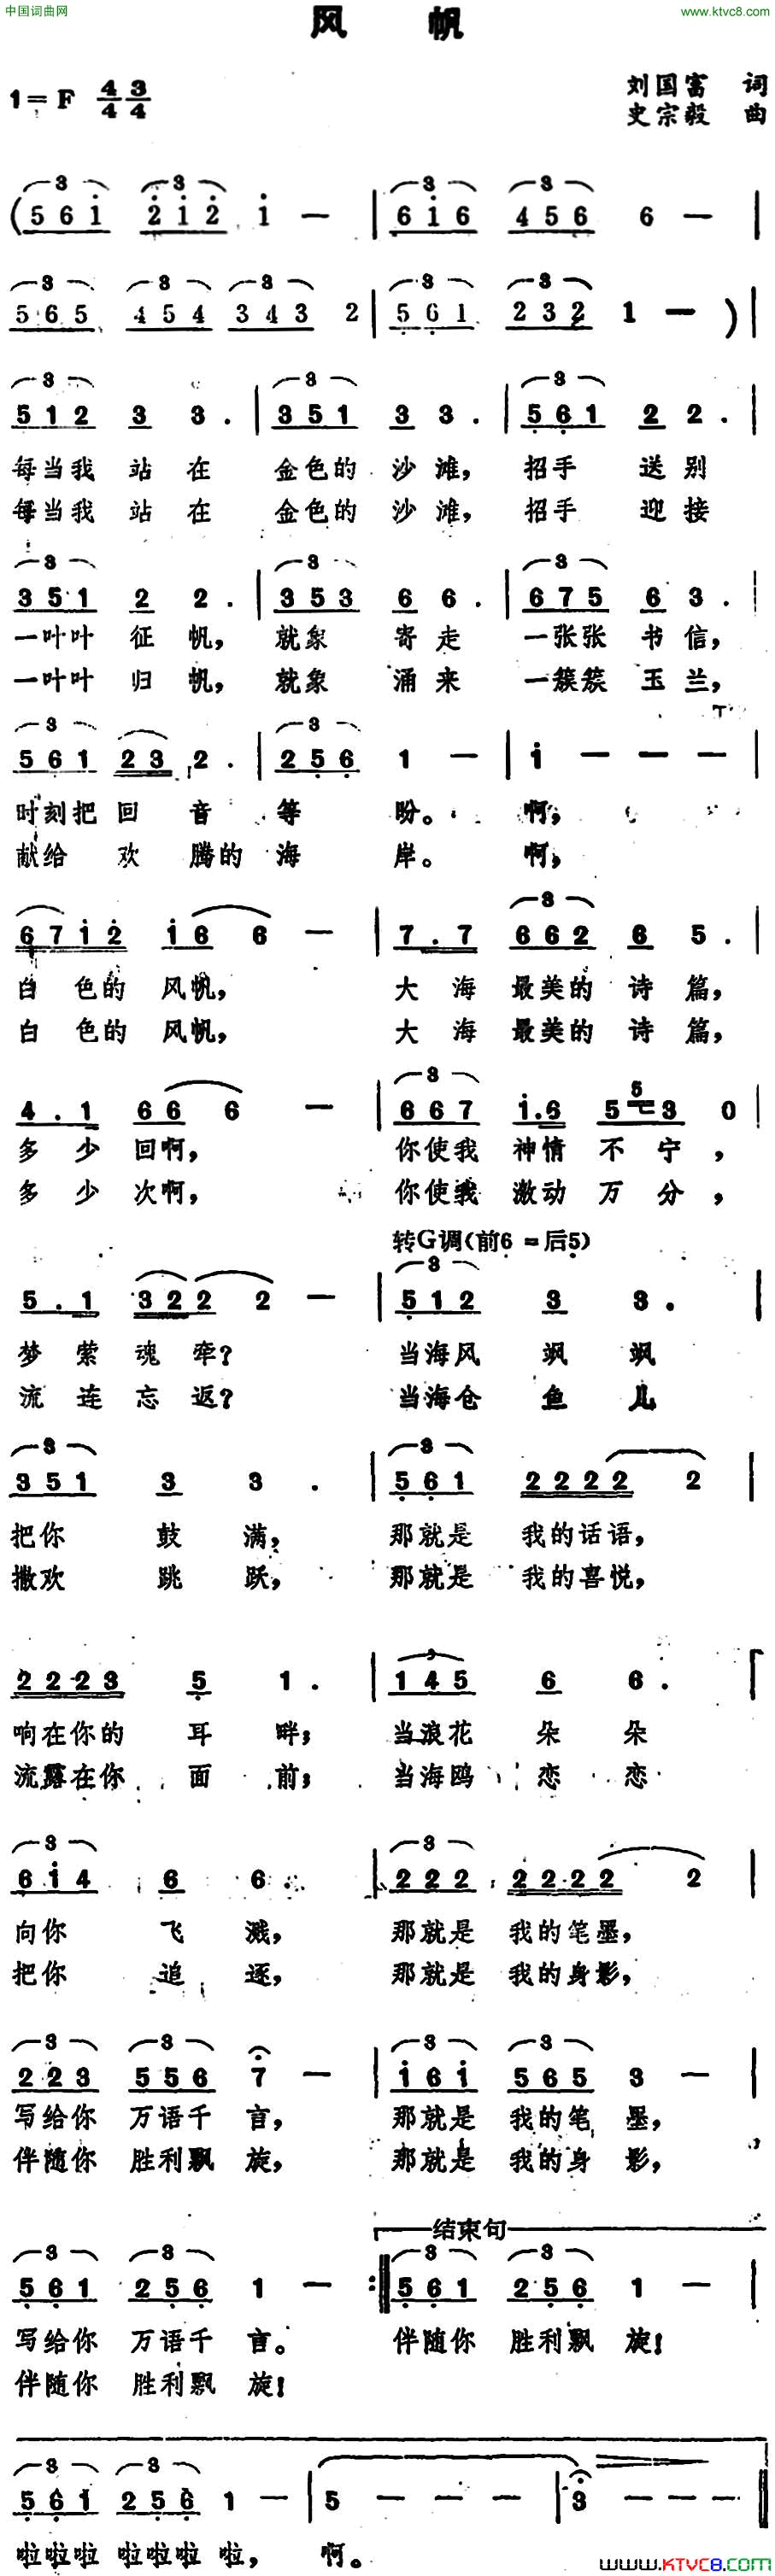 中国词曲网
www.ktvc8.com
风 帆
1=F 4/4 3/4
刘国富 词
史宗毅 曲
(5 6 i 2 i 2 i — | 6 i 6 4 5 6 6 — |
5 6 5 4 5 4 3 4 3 2 | 5 6 1 2 3 2 1 — )|
5 1 2 3 3. | 3 5 1 3 3. | 5 6 1 2 2. |
每当我 站 在 金色的 沙 滩， 招手 送 别
每当我 站 在 金色的 沙 滩， 招手 迎 接
3 5 1 2 2. | 3 5 3 6 6. | 6 7 5 6 3. |
一叶叶 征 帆， 就象 寄 走 一张张 书 信，
一叶叶 归 帆， 就象 涌 来 一簇簇 玉 兰，
5 6 1 2 3 2. | 2 5 6 1 — | i — — — |
时刻把 回 音 等 盼。 啊，
献给 欢 腾的 海 岸。 啊，
6 7 i 2 i 6 6 — | 7. 7 6 6 2 6 5. |
白 色的 风帆， 大 海 最美的 诗 篇，
白 色的 风帆， 大 海 最美的 诗 篇，
4. 1 6 6 6 — | 6 6 7 i. 6 5 5 3 0 |
多 少 回啊， 你使我 神情 不 宁，
多 少 次啊， 你使我 激动 万 分，
转G调(前6=后5)
5. 1 3 2 2 2 — | 5 1 2 3 3. |
梦 萦 魂 牵? 当海风 飒 飒
流 连 忘 返? 当海仓 鱼 儿
3 5 1 3 3. | 5 6 1 2 2 2 2 2 |
把你 鼓 满， 那就是 我的话语，
撒欢 跳 跃， 那就是 我的喜悦，
2 2 2 3 5 1. | 1 4 5 6 6. |
响在你的 耳 畔； 当浪花 朵 朵
流露在你 面 前； 当海鸥 恋 恋
6 i 4 6 6. | 2 2 2 2 2 2 2 2 |
向你 飞 溅， 那就是 我的笔墨，
把你 追 逐， 那就是 我的身影，
2 2 3 5 5 6 7 — | i 6 i 5 6 5 3 — |
写给你 万语千 言， 那就是 我的笔 墨，
伴随你 胜利飘 旋， 那就是 我的身 影，
结束句
5 6 1 2 5 6 1 — :‖ 5 6 1 2 5 6 1 — |
写给你 万语千 言。 伴随你 胜利飘 旋!
伴随你 胜利飘 旋!
5 6 1 2 5 6 1 — | 5 — — — | 3 — — — ‖
啦啦啦 啦啦啦 啦， 啊。
www.KTVC8.COM